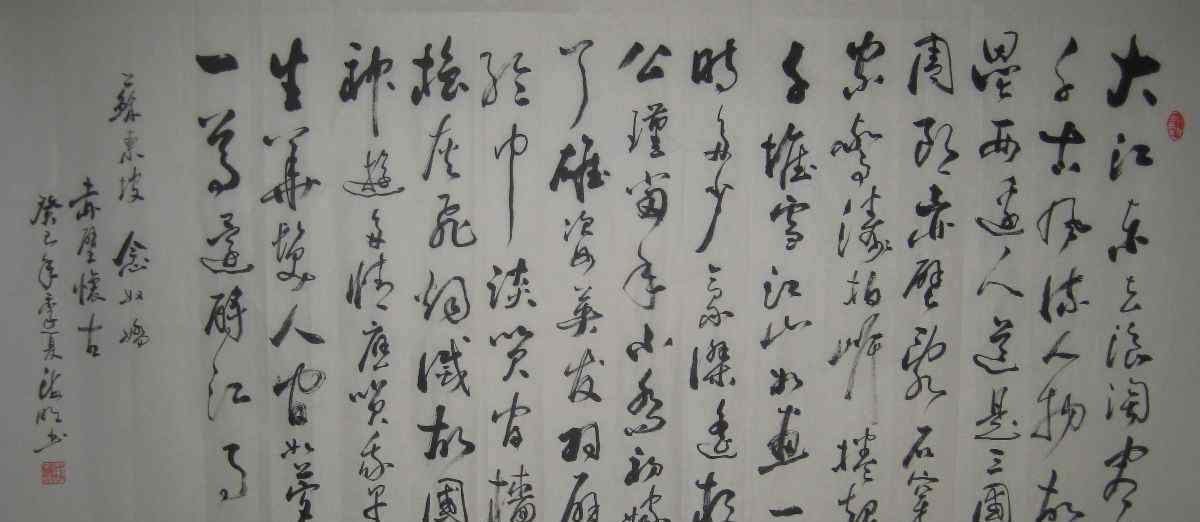 大江东去浪淘尽
千古风流人物故
垒西边人道是三国
周郎赤壁乱石穿
空惊涛拍岸捲起
千堆雪江山如画一
时多少豪杰遥想
公瑾当年小乔初嫁
了雄姿英发羽扇
纶巾谈笑间樯
橹灰飞烟灭故国
神游多情应笑我早
生华发人间如梦
一尊还酹江月
苏东坡 念奴娇
赤壁怀古
癸巳年季夏